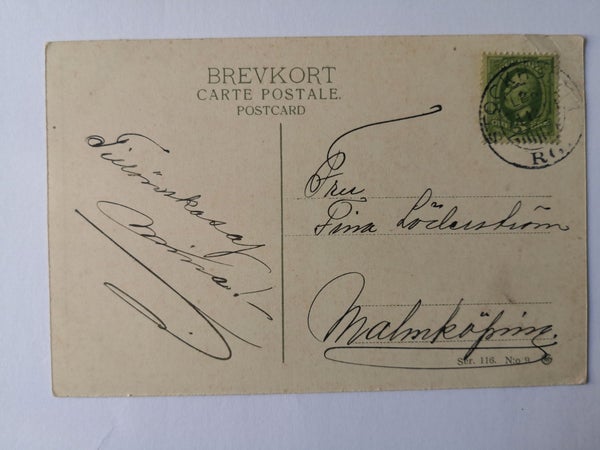 BREVKORT
CARTE POSTALE.
POSTCARD
Tillönskas af
Fru
Tina Söderström
Malmköping.
Ser. 116. N:o 9.